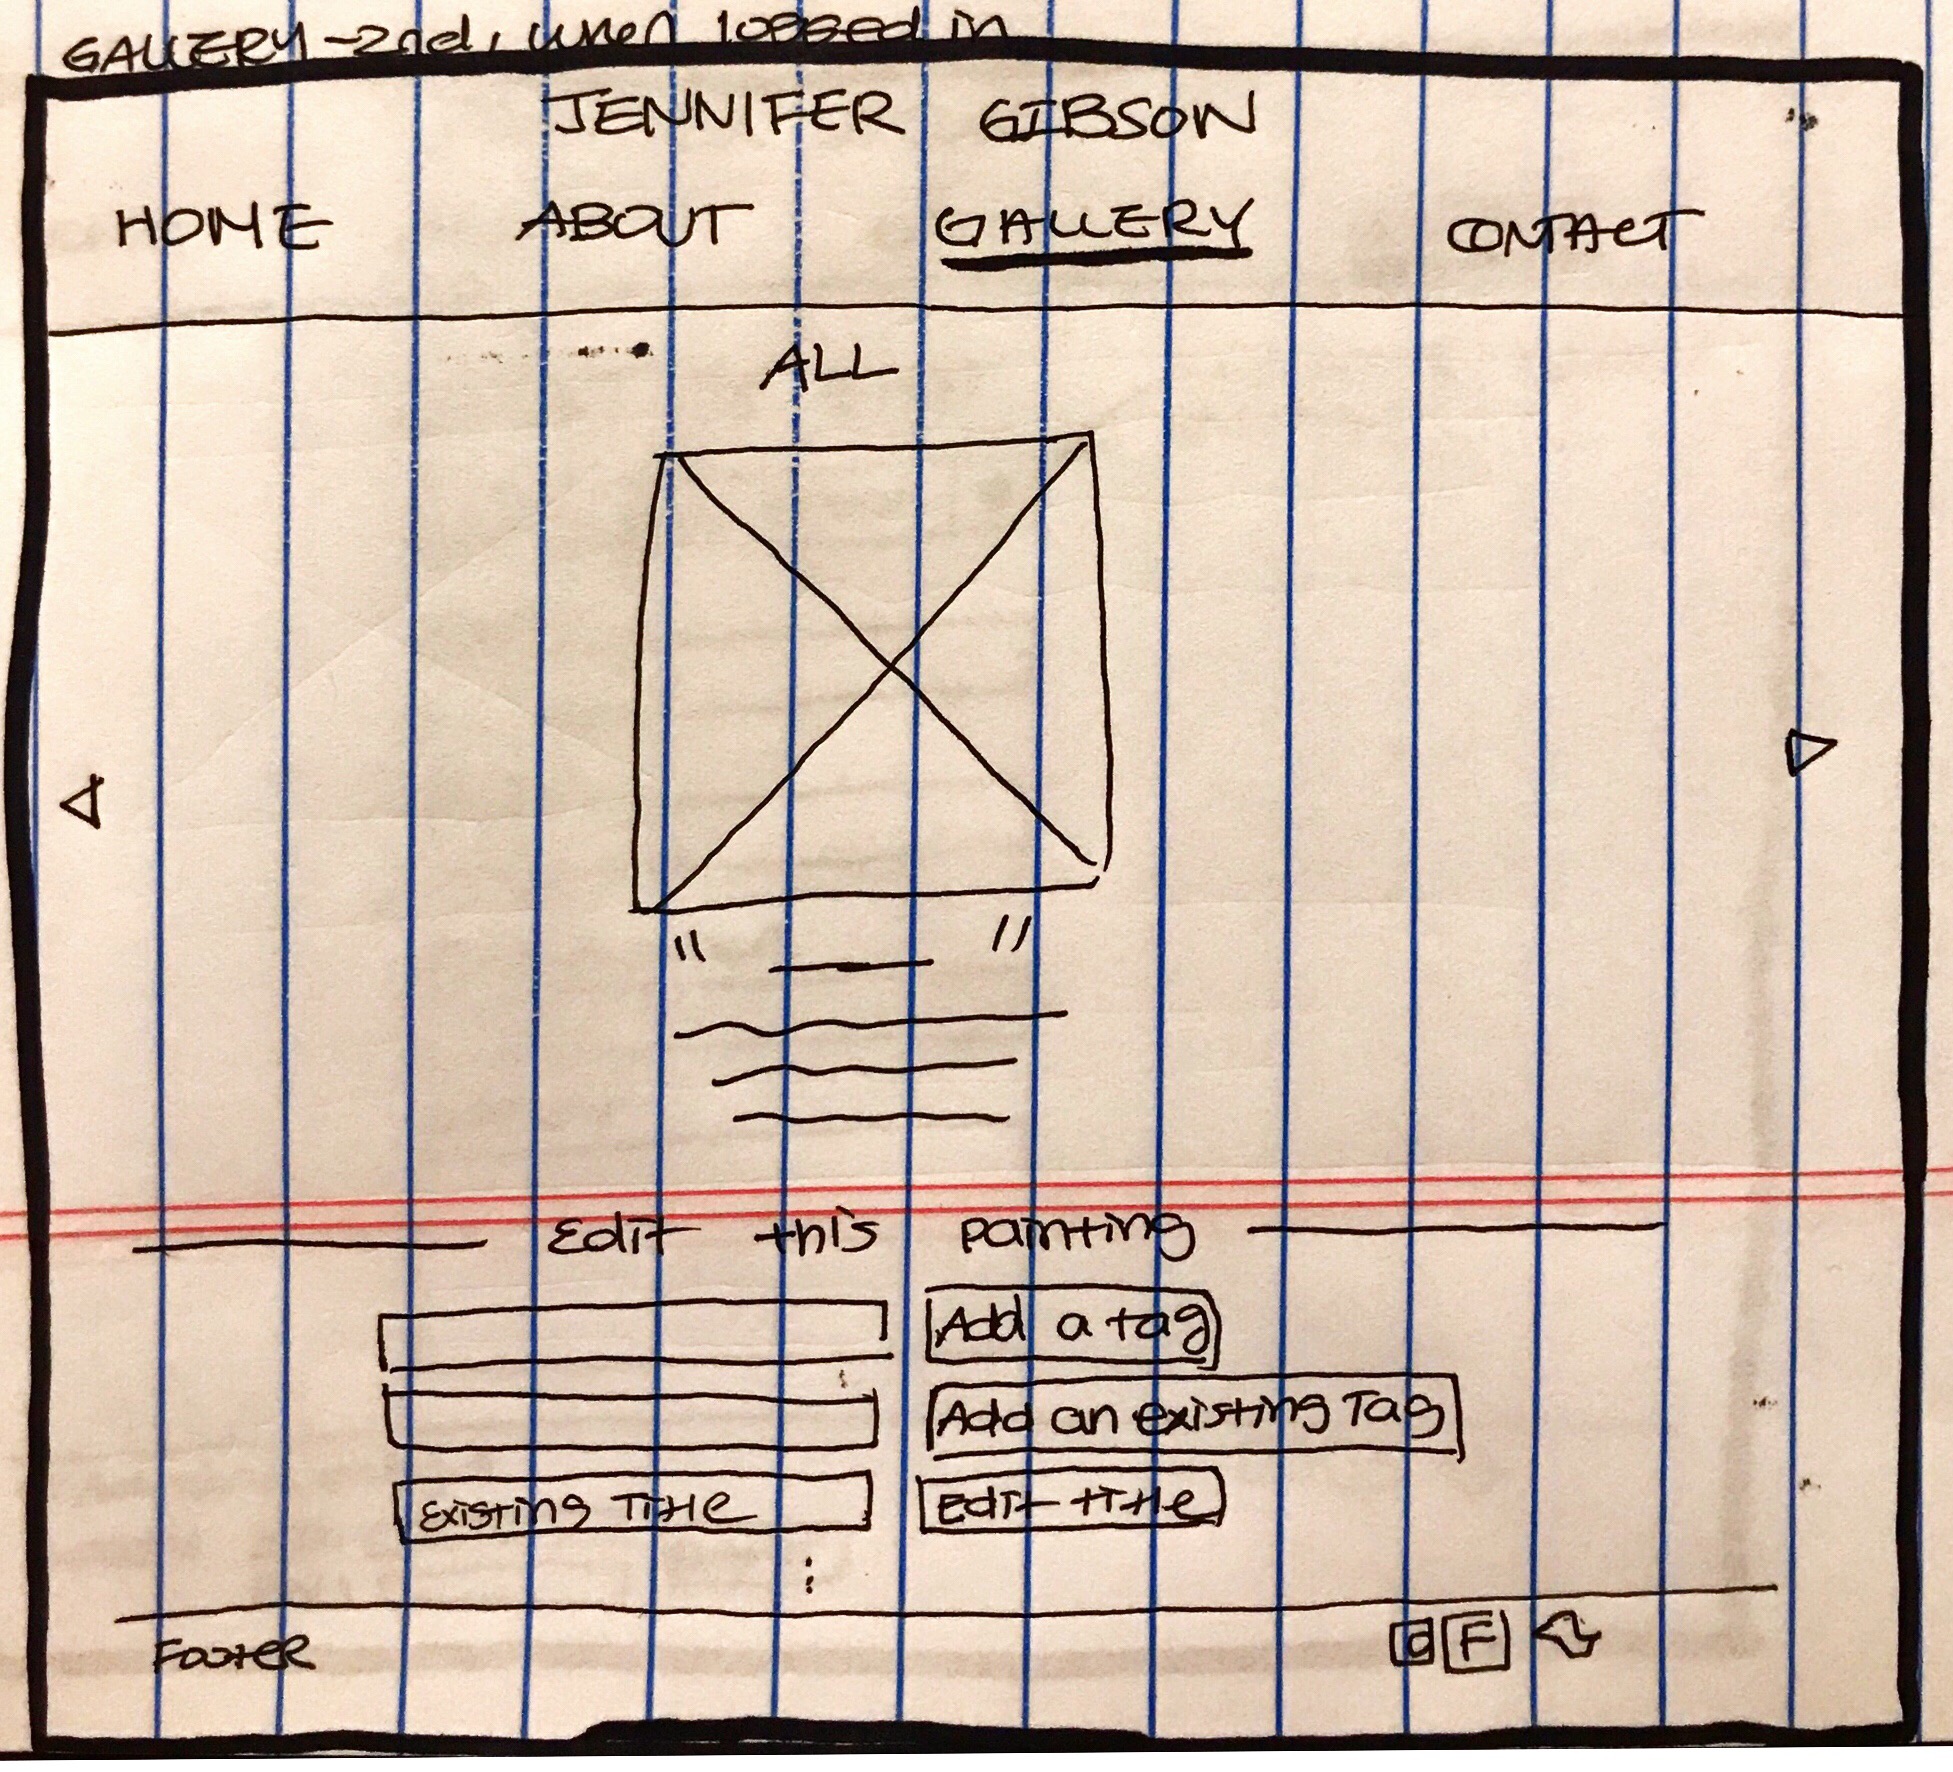 GALLERY - 2nd, when logged in
JENNIFER GIBSON
HOME ABOUT GALLERY CONTACT
ALL
" "
Edit this painting
Add a tag
Add an existing Tag
Existing Title Edit title
:
Footer F